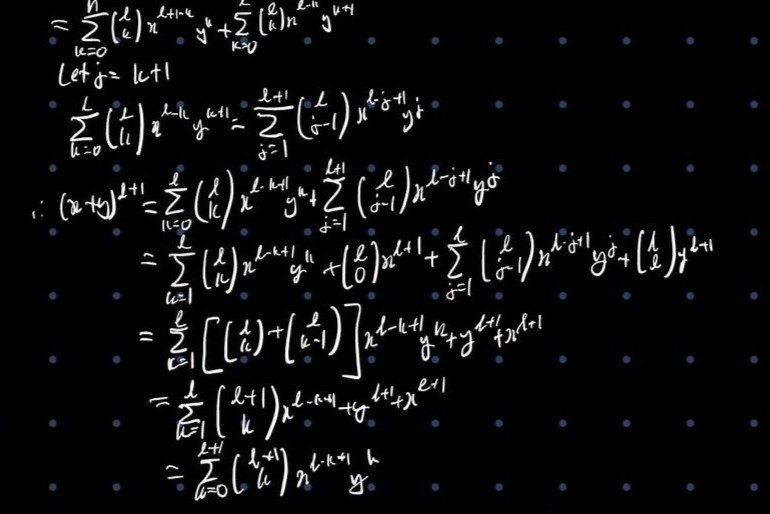 = \sum_{k=0}^{n} \binom{l}{k} x^{l+1-k} y^k + \sum_{k=0}^{l} \binom{l}{k} x^{l-k} y^{k+1}
Let j = k+1
\sum_{k=0}^{l} \binom{l}{k} x^{l-k} y^{k+1} = \sum_{j=1}^{l+1} \binom{l}{j-1} x^{l-j+1} y^j
∴ (x+y)^{l+1} = \sum_{k=0}^{l} \binom{l}{k} x^{l-k+1} y^k + \sum_{j=1}^{l+1} \binom{l}{j-1} x^{l-j+1} y^j
= \sum_{k=1}^{l} \binom{l}{k} x^{l-k+1} y^k + \binom{l}{0} x^{l+1} + \sum_{j=1}^{l} \binom{l}{j-1} x^{l-j+1} y^j + \binom{l}{l} y^{l+1}
= \sum_{k=1}^{l} [\binom{l}{k} + \binom{l}{k-1}] x^{l-k+1} y^k + y^{l+1} + x^{l+1}
= \sum_{k=1}^{l} \binom{l+1}{k} x^{l-k+1} + y^{l+1} + x^{l+1}
= \sum_{k=0}^{l+1} \binom{l+1}{k} x^{l-k+1} y^k